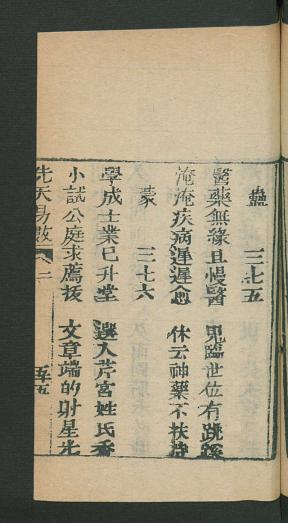 蠱 三七五
醫藥無緣且慢醫 鬼臨世位有蹺蹊
淹淹疾病遲遲愈 休云神藥不扶持
蒙 三七六
學成士業已升堂 選入芹宮姓氏香
小試公庭求薦拔 文章端的射星光
先天易數 二 五五